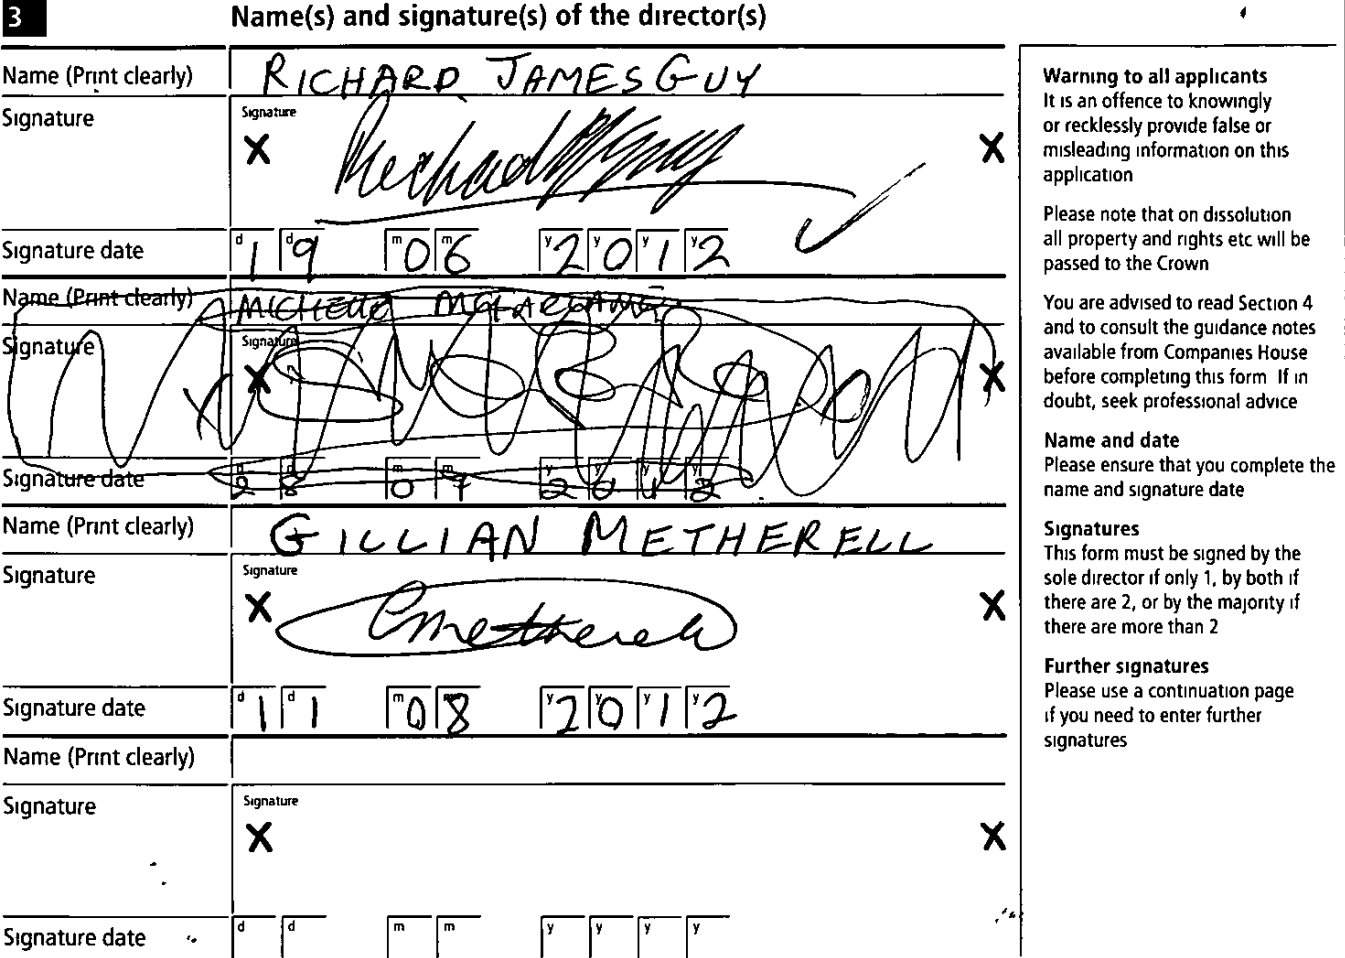 3 Name(s) and signature(s) of the director(s)
Name (Print clearly) RICHARD JAMES GUY
Signature Signature
X Richard Guy X
Signature date d d m m y y y y 19 06 2012
Name (Print clearly) MICHELLE
Signature Signature
X X
Signature date d d m m y y y y 28 07 2012
Name (Print clearly) GILLIAN METHERELL
Signature Signature
X GMetherell X
Signature date d d m m y y y y 11 08 2012
Name (Print clearly)
Signature Signature
X X
Signature date d d m m y y y y
Warning to all applicants
It is an offence to knowingly
or recklessly provide false or
misleading information on this
application
Please note that on dissolution
all property and rights etc will be
passed to the Crown
You are advised to read Section 4
and to consult the guidance notes
available from Companies House
before completing this form If in
doubt, seek professional advice
Name and date
Please ensure that you complete the
name and signature date
Signatures
This form must be signed by the
sole director if only 1, by both if
there are 2, or by the majority if
there are more than 2
Further signatures
Please use a continuation page
if you need to enter further
signatures